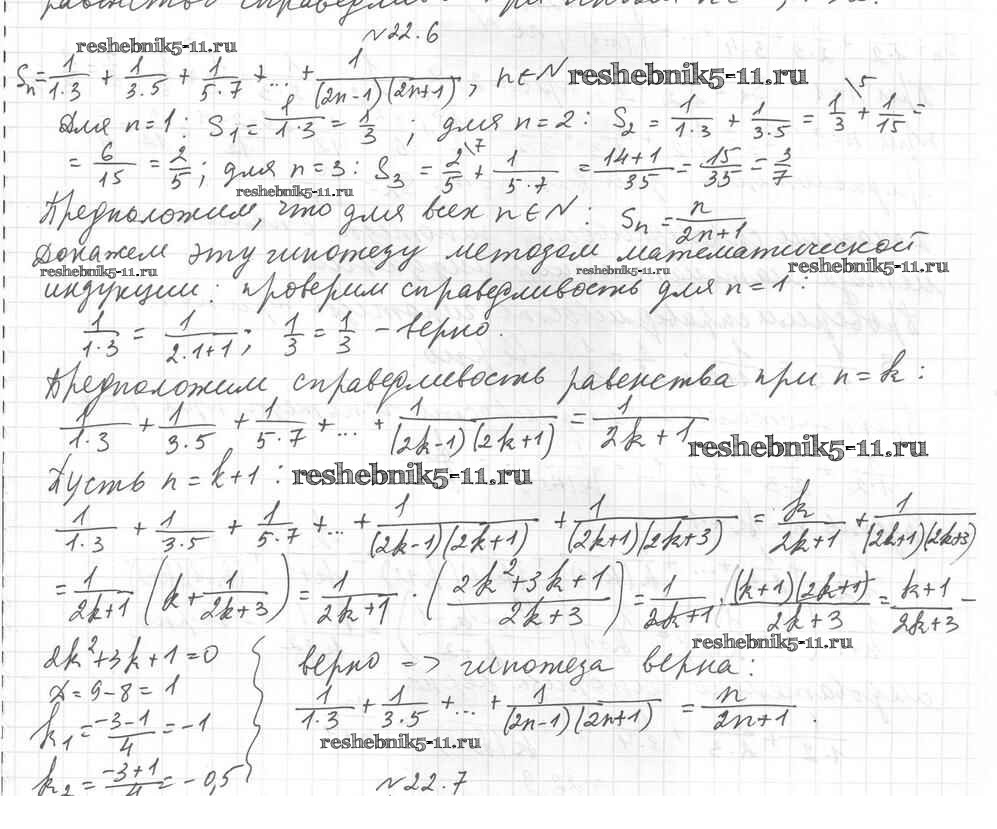 равенство справедливо при
№22.6
reshebnik5-11.ru
Sₙ = 1/(1·3) + 1/(3·5) + 1/(5·7) + ... + 1/((2n-1)(2n+1)), n∈N reshebnik5-11.ru
Для n=1: S₁ = 1/(1·3) = 1/3; для n=2: S₂ = 1/(1·3) + 1/(3·5) = 1/3 \5 + 1/15 =
= 6/15 = 2/5; для n=3: S₃ = 2/5 \7 + 1/(5·7) = (14+1)/35 = 15/35 = 3/7
reshebnik5-11.ru
Предположим, что для всех n∈N: Sₙ = n/(2n+1)
Докажем эту гипотезу методом математической
reshebnik5-11.ru reshebnik5-11.ru reshebnik5-11.ru
индукции: проверим справедливость для n=1:
1/(1·3) = 1/(2·1+1); 1/3 = 1/3 – верно.
Предположим справедливость равенства при n=k:
1/(1·3) + 1/(3·5) + 1/(5·7) + ... + 1/((2k-1)(2k+1)) = 1/(2k+1) reshebnik5-11.ru
Пусть n=k+1: reshebnik5-11.ru
1/(1·3) + 1/(3·5) + 1/(5·7) + ... + 1/((2k-1)(2k+1)) + 1/((2k+1)(2k+3)) = k/(2k+1) + 1/((2k+1)(2k+3))
= 1/(2k+1) (k + 1/(2k+3)) = 1/(2k+1) · ((2k²+3k+1)/(2k+3)) = 1/(2k+1) · ((k+1)(2k+1))/(2k+3) = (k+1)/(2k+3) –
reshebnik5-11.ru
2k²+3k+1=0
D=9-8=1
k₁ = (-3-1)/4 = -1
k₂ = (-3+1)/4 = -0,5
верно => гипотеза верна:
1/(1·3) + 1/(3·5) + ... + 1/((2n-1)(2n+1)) = n/(2n+1).
reshebnik5-11.ru
№22.7